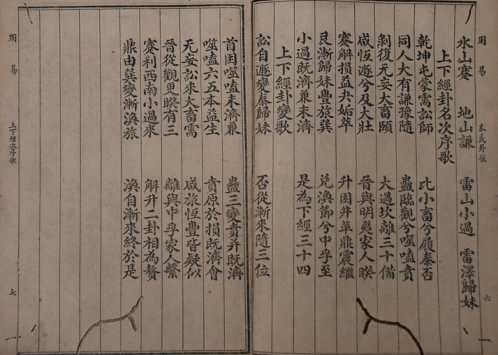 水山蹇 地山謙 雷山小過 雷澤歸妹
上下經卦名次序歌
乾坤屯蒙需訟師 比小畜兮履泰否
同人大有謙豫隨 蠱臨觀兮噬嗑賁
剝復无妄大畜頤 大過坎離三十備
咸恒遯兮及大壯 晉與明夷家人睽
蹇解損益夬姤萃 升困井革鼎震繼
艮漸歸妹豐旅巽 兌渙節兮中孚至
小過既濟兼未濟 是為下經三十四
上下經卦變歌
訟自遯變泰歸妹 否從漸來隨三位
首困噬嗑未濟兼 蠱三變賁井既濟
噬嗑六五本益生 賁原於損既濟會
无妄訟來大畜需 咸旅恒豐皆疑似
晉從觀更睽有三 離與中孚家人繫
蹇利西南小過來 解升二卦相為贅
鼎由巽變漸渙旅 渙自漸來終於是
周易
七